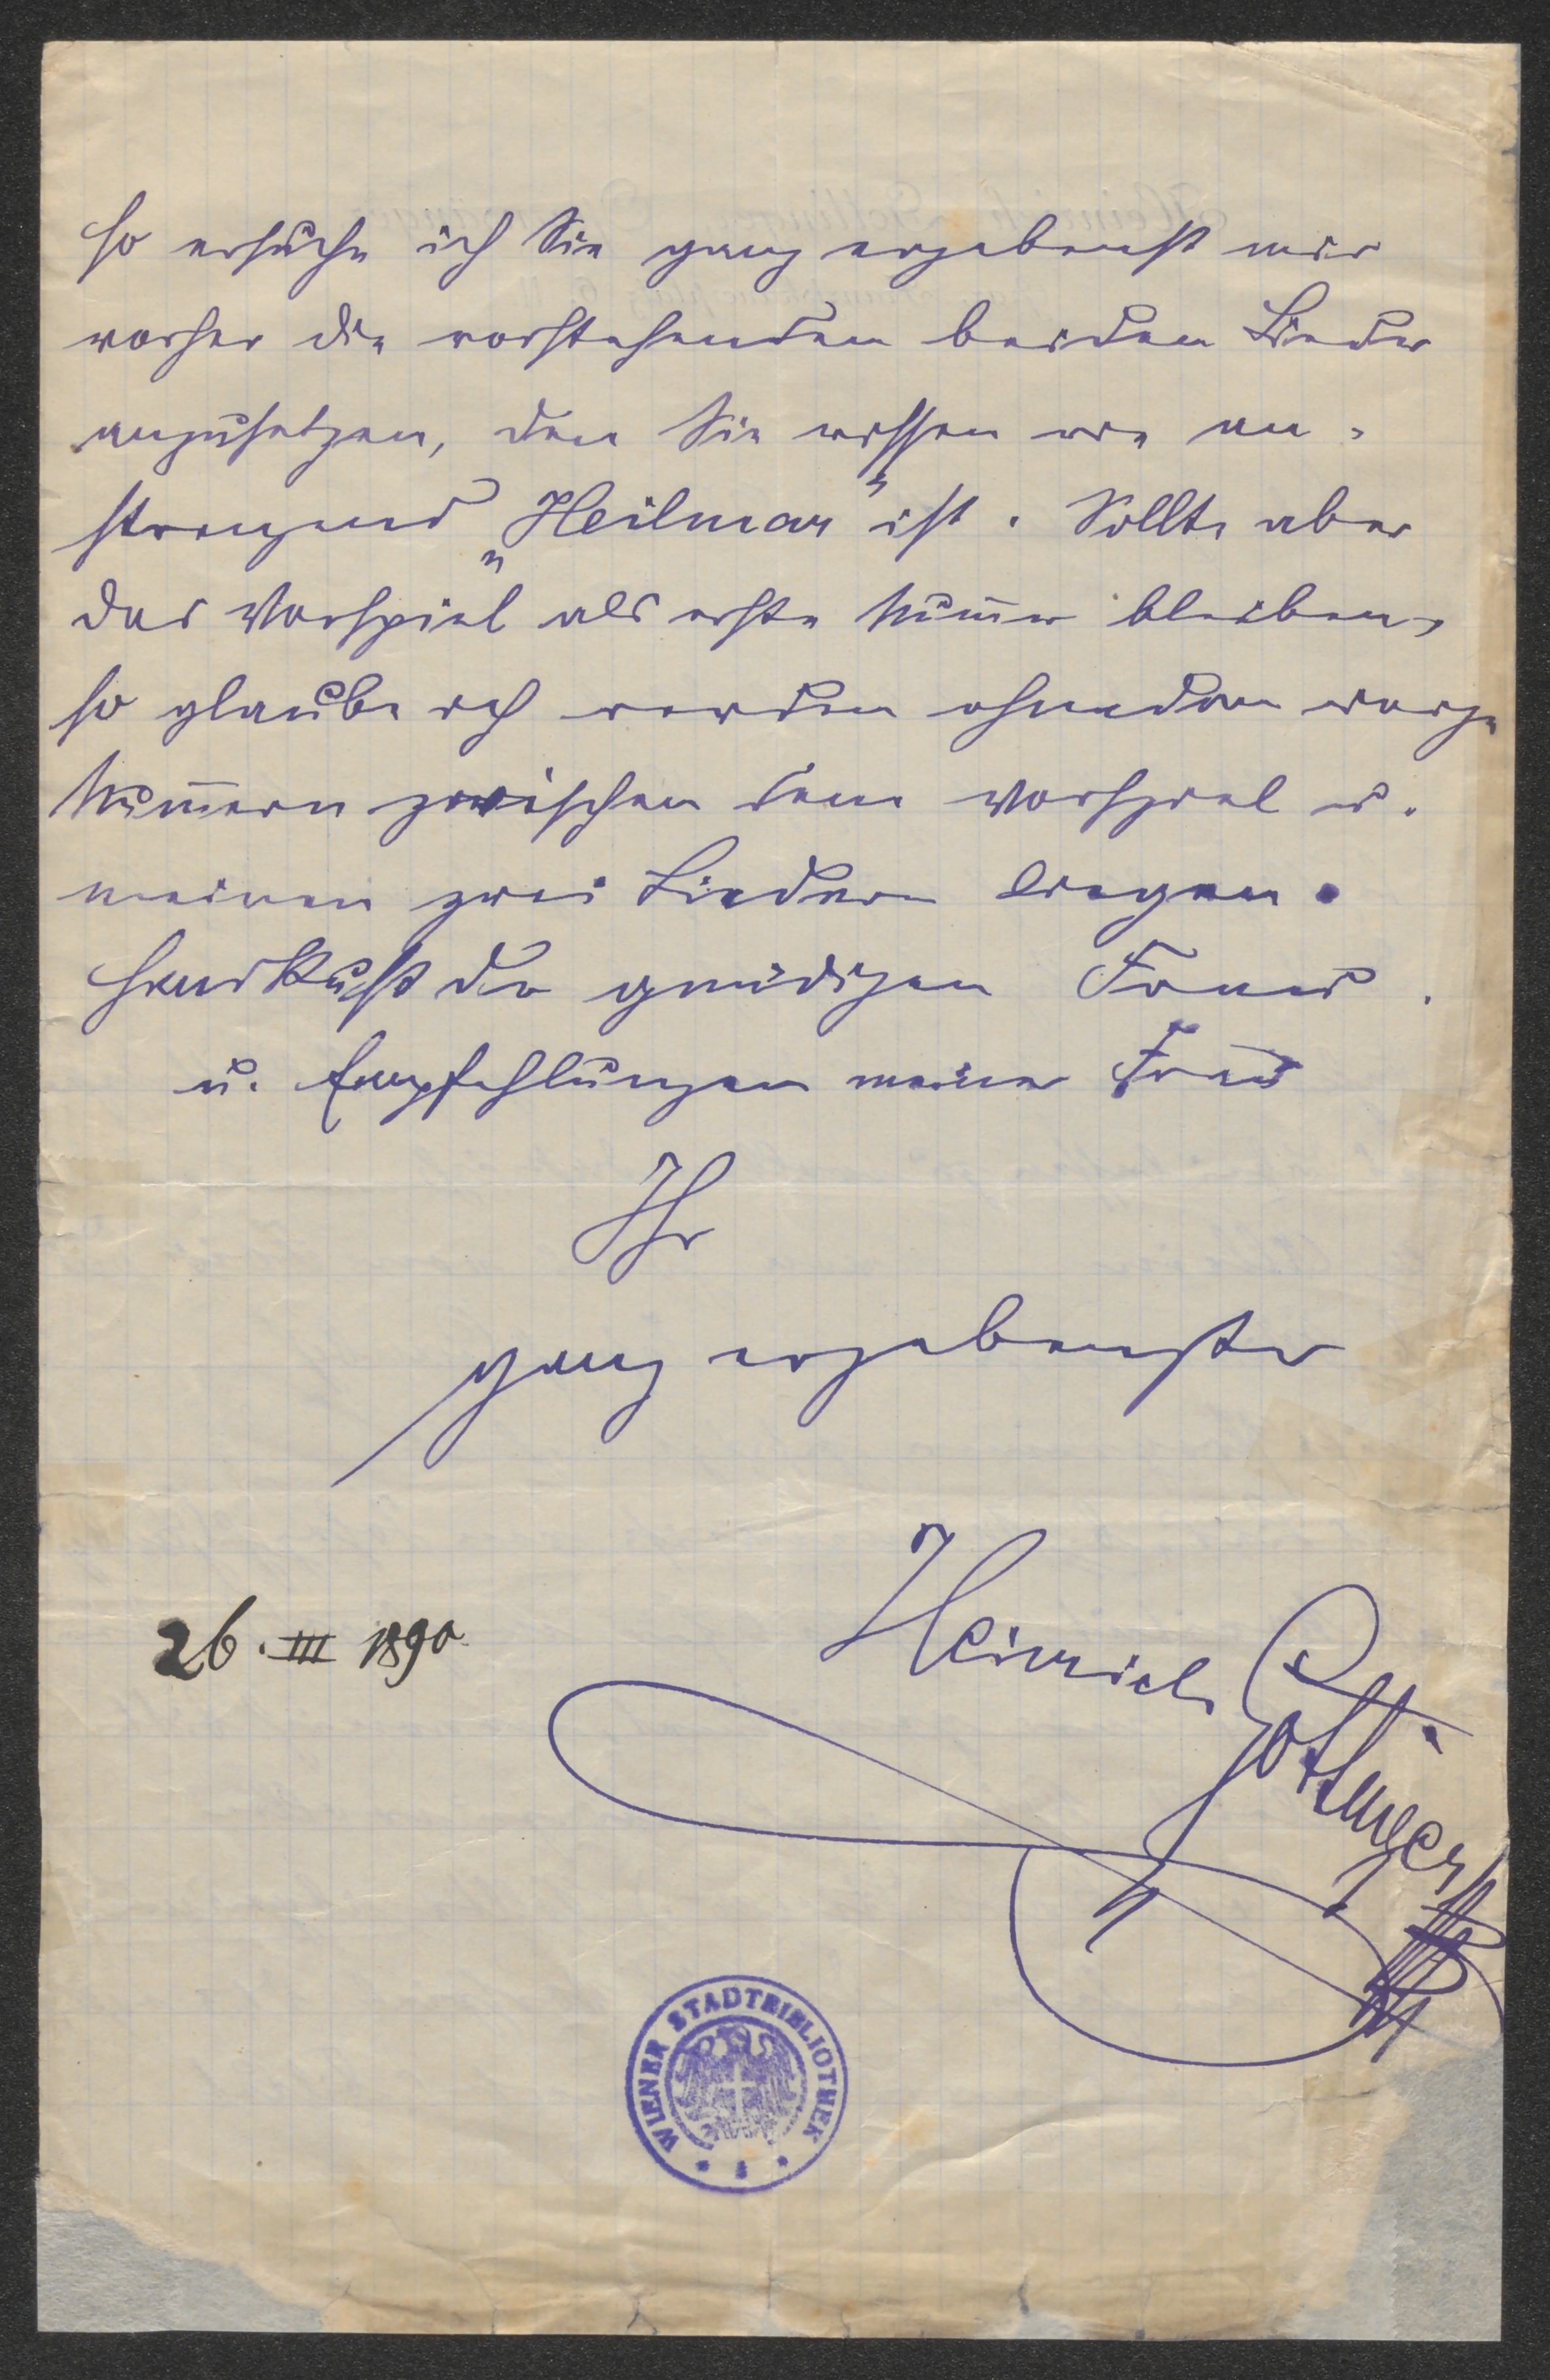 so ersuche ich Sie ganz ergebenst mir
vorher die vorstehenden beiden Lieder
anzusetzen, den Sie wissen wie an-
strengend „Heilmar" ist. Sollte aber
das Vorspiel als erste Num̄er bleiben,
so glaube ich werden ohnedem
Num̄ern zwischen dem Vorspiel u.
meinen zwei Liedern liegen.
Handkuß der gnädigen Frau
u. Empfehlungen meiner Frau
Ihr
ganz ergebenster
Heinrich Gottinger
26. III 1890
WIENER STADTBIBLIOTHEK